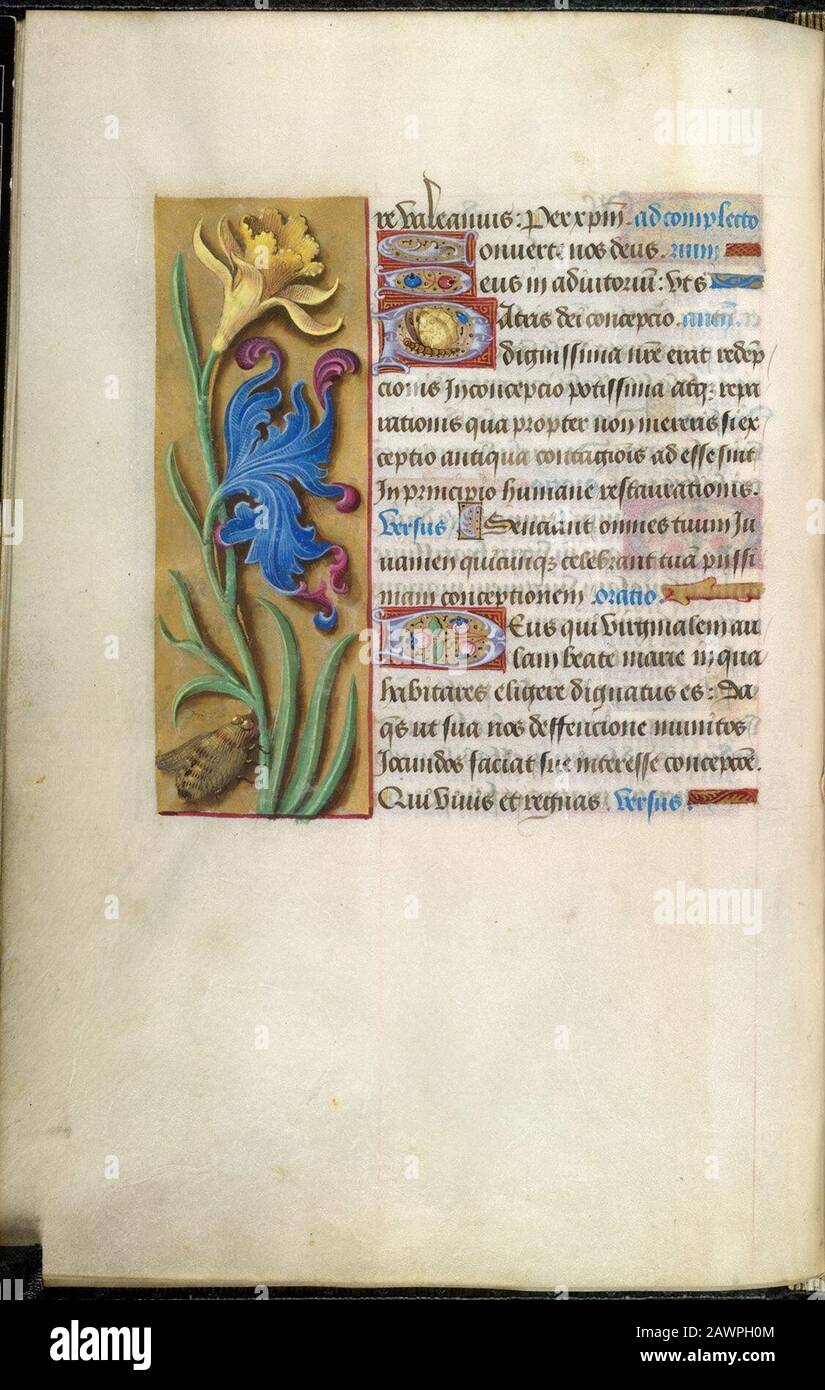 re valeamus: Per xp̄m̄. ad complecto
onuerte nos deus. rium
eus in adiutoriū: Vt s
Atris dei concepcio. anten̄.
dignissima nr̄e erat redēp
cionis Inconcepcio potissima atq; repa
rationis qua propter non mereris si ex
ceptio antiqua contagiois ad esse sinit
In principio humane restaurationis.
Versus Senciant omnes tuum Iu
uamen quicunq; celebrant tuā pussi
mam conceptionem oratio.
Eus qui Virginalem au
lam beate marie in qua
habitares eligere dignatus es: Da
q̄s ut sua nos deffencione munitos
Jocundos faciat sue interesse concepcōe.
Qui Viuis et regnas. Versus.
a
alamy
Image ID: 2AWPH0M
www.alamy.com